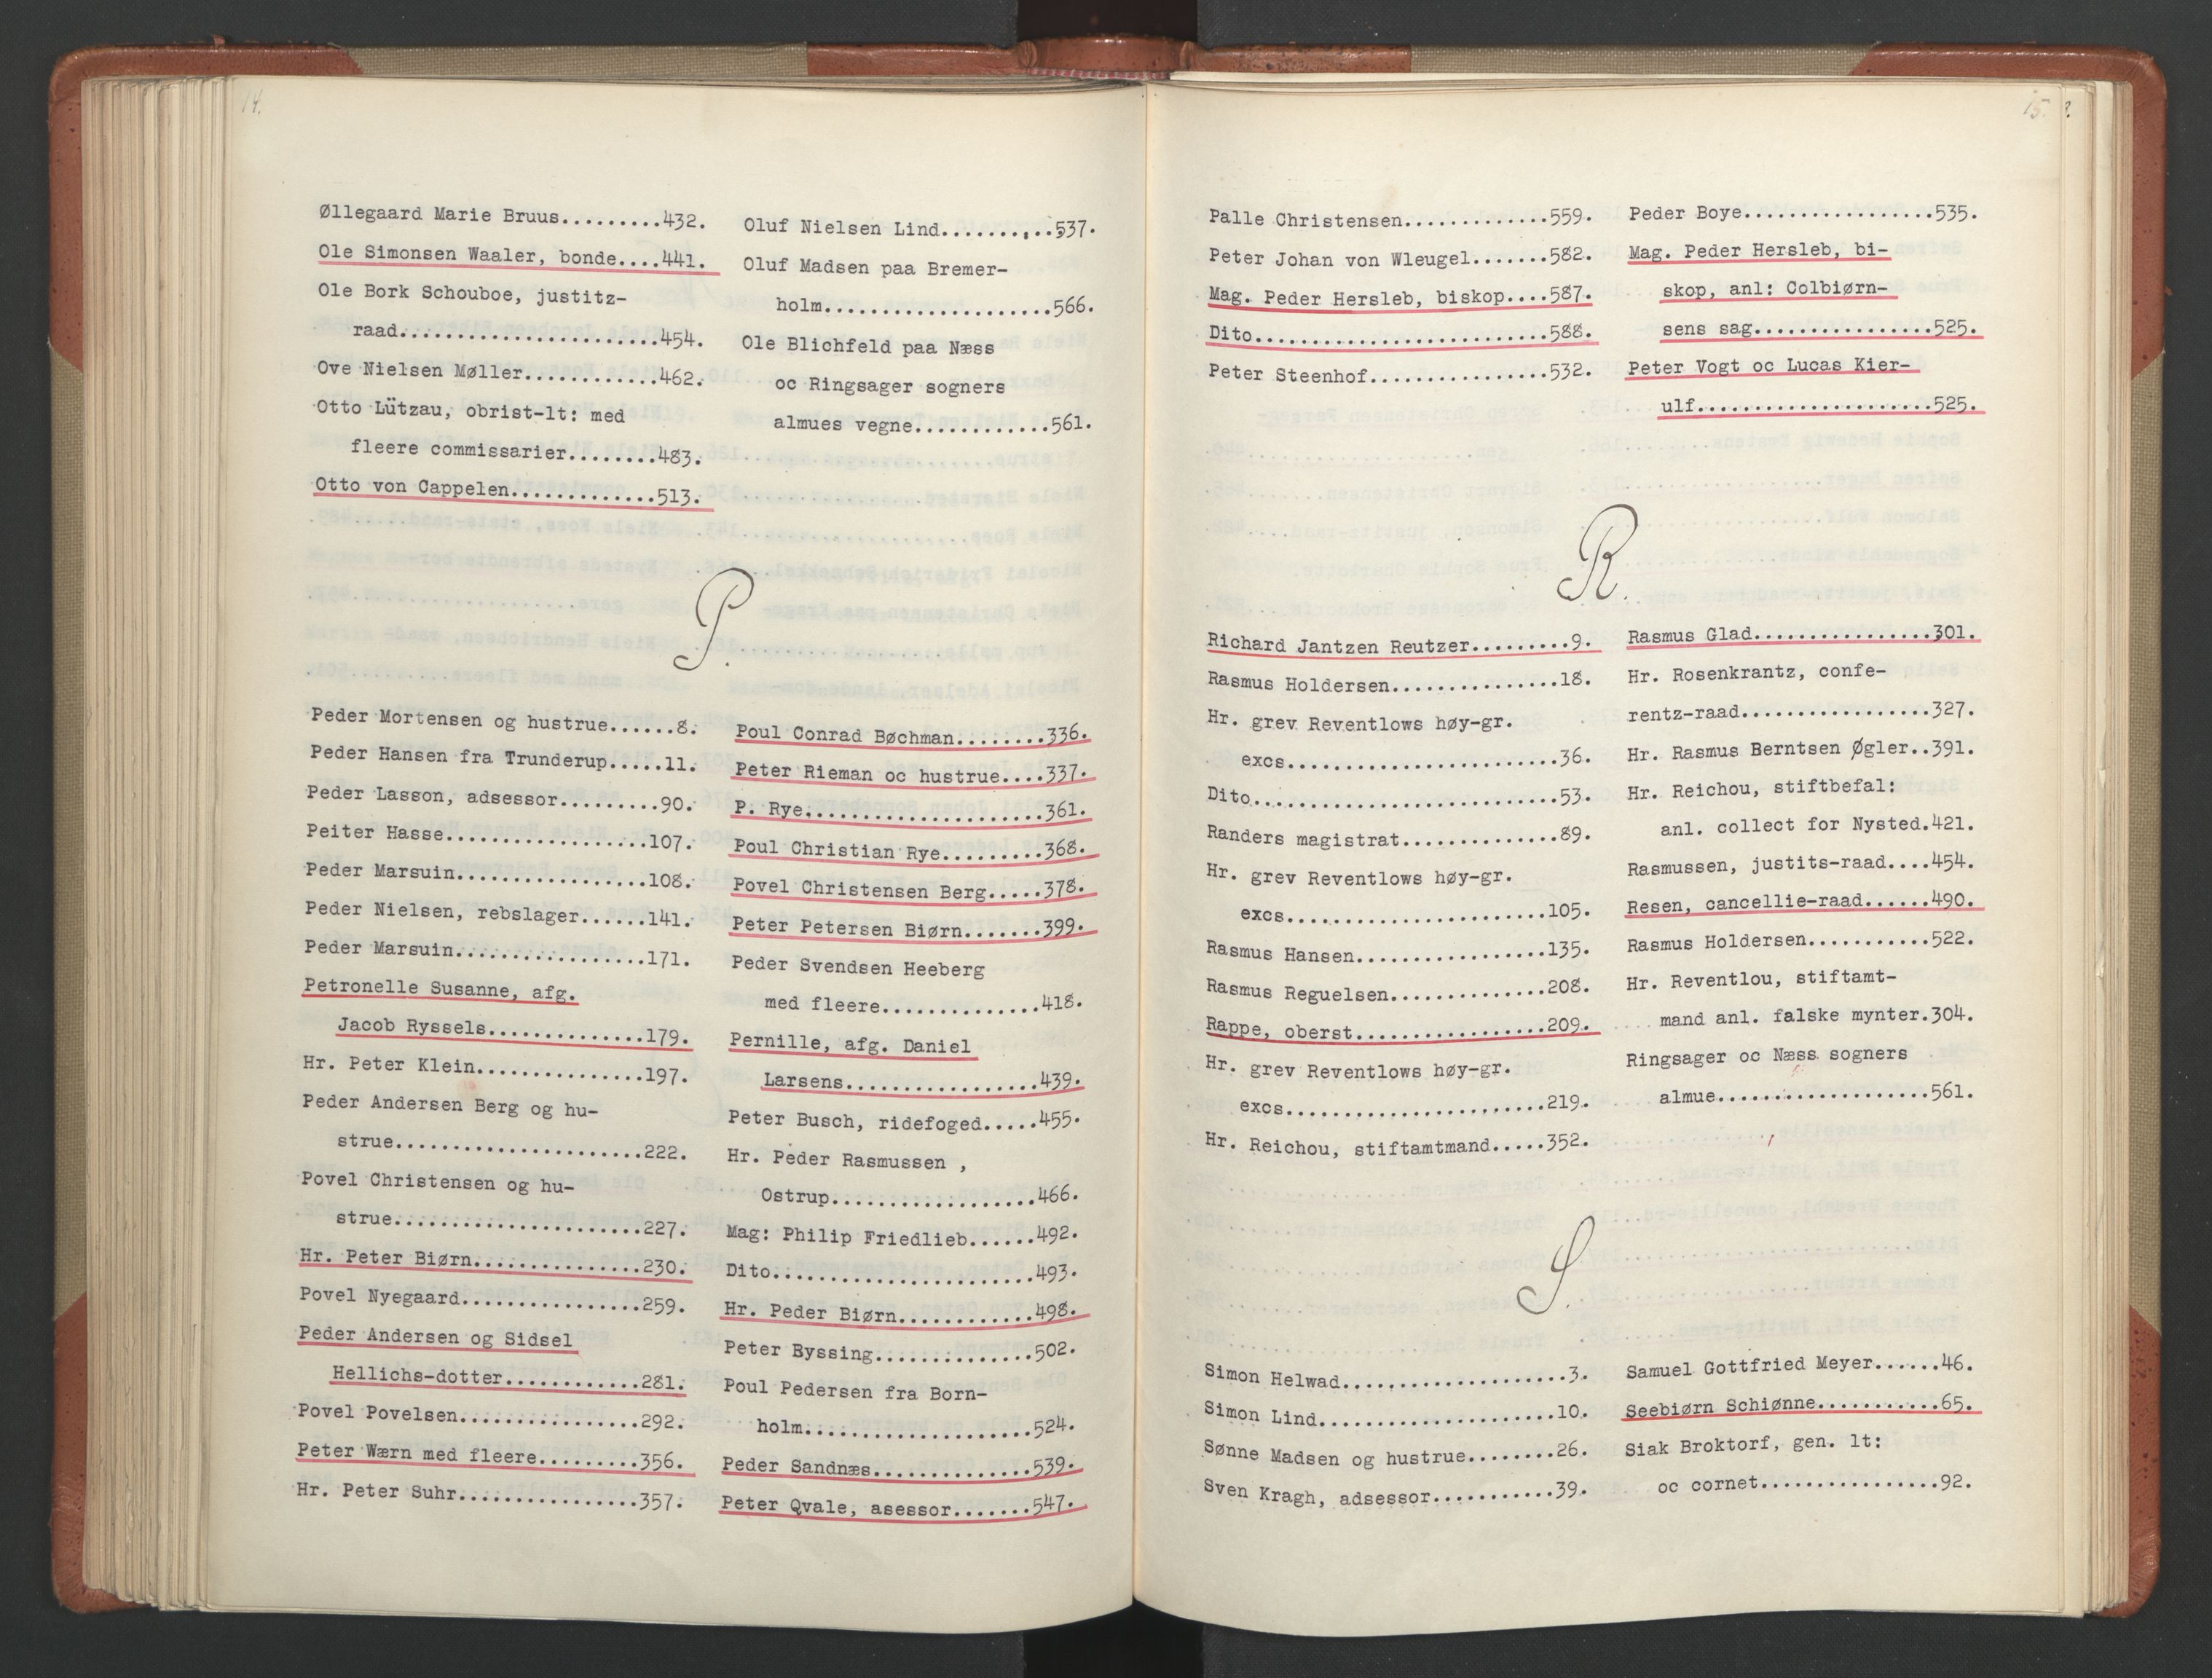 14.
Øllegaard Marie Bruus.........432.
Ole Simonsen Waaler, bonde....441.
Ole Bork Schouboe, justitz-
raad.......................454.
Ove Nielsen Møller............462.
Otto Lützau, obrist-lt: med
fleere commissarier........483.
Otto von Cappelen.............513.
Oluf Nielsen Lind..........537.
Oluf Madsen paa Bremer-
holm....................566.
Ole Blichfeld paa Næss
oc Ringsager sogners
almues vegne............561.
P.
Peder Mortensen og hustrue......8.
Peder Hansen fra Trunderup.....11.
Peder Lasson, adsessor.........90.
Peiter Hasse..................107.
Peder Marsuin.................108.
Peder Nielsen, rebslager......141.
Peder Marsuin.................171.
Petronelle Susanne, afg.
Jacob Ryssels..............179.
Hr. Peter Klein...............197.
Peder Andersen Berg og hu-
strue......................222.
Povel Christensen og hu-
strue......................227.
Hr. Peter Biørn...............230.
Povel Nyegaard................259.
Peder Andersen og Sidsel
Hellichs-dotter............281.
Povel Povelsen................292.
Peter Wærn med fleere.........356.
Hr. Peter Suhr................357.
Poul Conrad Bøchman........336.
Peter Rieman oc hustrue....337.
P. Rye.....................361.
Poul Christian Rye.........368.
Povel Christensen Berg.....378.
Peter Petersen Biørn.......399.
Peder Svendsen Heeberg
med fleere..............418.
Pernille, afg. Daniel
Larsens.................439.
Peter Busch, ridefoged.....455.
Hr. Peder Rasmussen ,
Ostrup..................466.
Mag: Philip Friedlieb......492.
Dito.......................493.
Hr. Peder Biørn............498.
Peter Byssing..............502.
Poul Pedersen fra Born-
holm....................524.
Peder Sandnæs..............539.
Peter Qvale, asessor.......547.
15.
Palle Christensen.............559.
Peter Johan von Wleugel.......582.
Mag. Peder Hersleb, biskop....587.
Dito..........................588.
Peter Steenhof................532.
Peder Boye.................535.
Mag. Peder Hersleb, bi-
skop, anl: Colbiørn-
sens sag................525.
Peter Vogt oc Lucas Kier-
ulf.....................525.
R.
Richard Jantzen Reutzer.........9.
Rasmus Holdersen...............18.
Hr. grev Reventlows høy-gr.
excs........................36.
Dito...........................53.
Randers magistrat..............89.
Hr. grev Reventlows høy-gr.
excs.......................105.
Rasmus Hansen.................135.
Rasmus Reguelsen..............208.
Rappe, oberst.................209.
Hr. grev Reventlows høy-gr.
excs.......................219.
Hr. Reichou, stiftamtmand.....352.
Rasmus Glad................301.
Hr. Rosenkrantz, confe-
rentz-raad.................327.
Hr. Rasmus Berntsen Øgler..391.
Hr. Reichou, stiftbefal:
anl. collect for Nysted.421.
Rasmussen, justits-raad....454.
Resen, cancellie-raad......490.
Rasmus Holdersen...........522.
Hr. Reventlou, stiftamt-
mand anl. falske mynter.304.
Ringsager oc Næss sogners
almue...................561.
S.
Simon Helwad....................3.
Simon Lind.....................10.
Sønne Madsen og hustrue........26.
Sven Kragh, adsessor...........39.
Samuel Gottfried Meyer......46.
Seebiørn Schiønne...........65.
Siak Broktorf, gen. lt:
oc cornet................92.